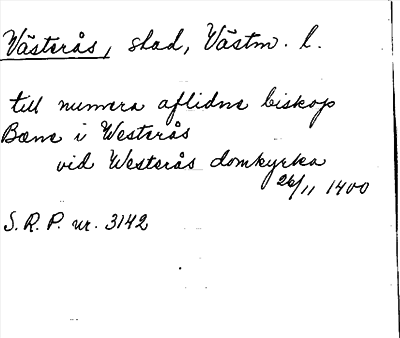 Västerås, stad, Västm. l.
till numera aflidne biskop
Bene i Westerås
vid Westerås domkyrka
26/11 1400
S. R. P. nr. 3142